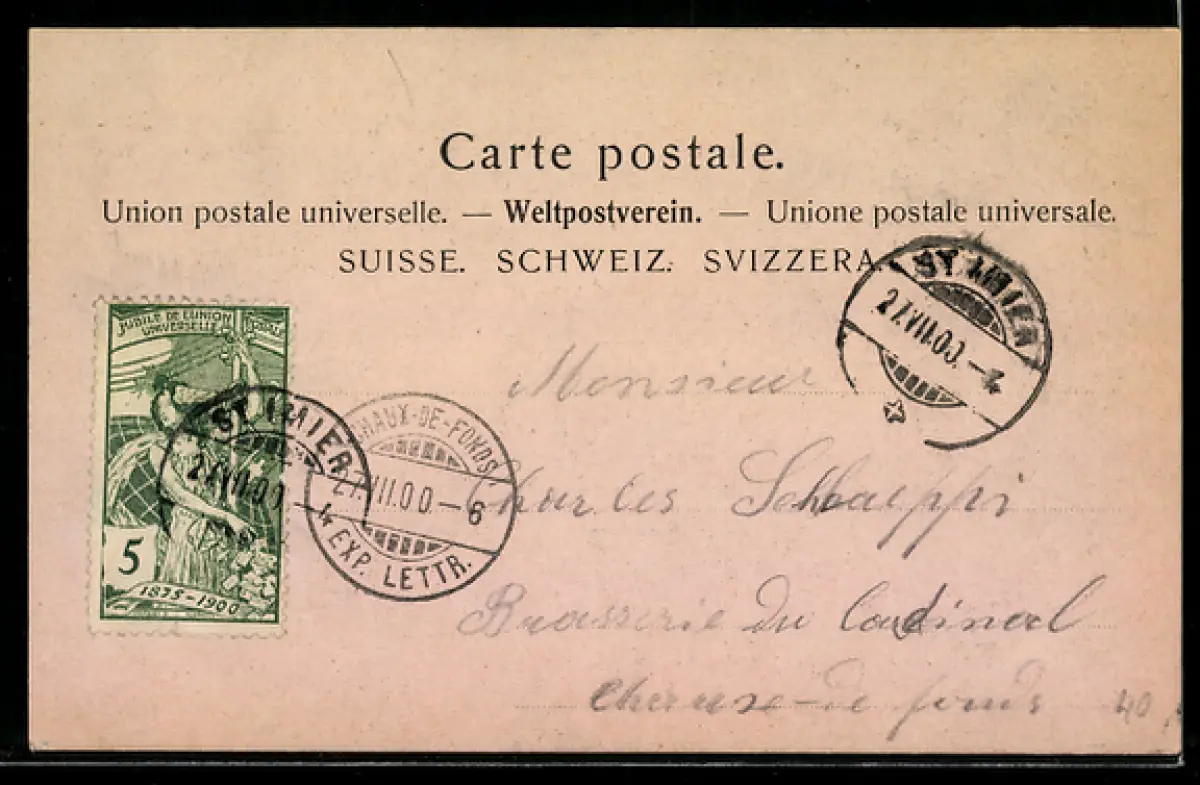 Carte postale.
Union postale universelle. — Weltpostverein. — Unione postale universale.
SUISSE. SCHWEIZ. SVIZZERA.
ST. IMIER
27.VII.00.–4
JUBILÉ DE L'UNION
UNIVERSELLE POSTALE
5
1875–1900
ST. IMIER
27.VII.00.–4
CHAUX-DE-FONDS
27.VII.00–6
EXP. LETTR.
Monsieur
Charles Schaeppi
Brasserie du Cardinal
Chaux-de fonds
40